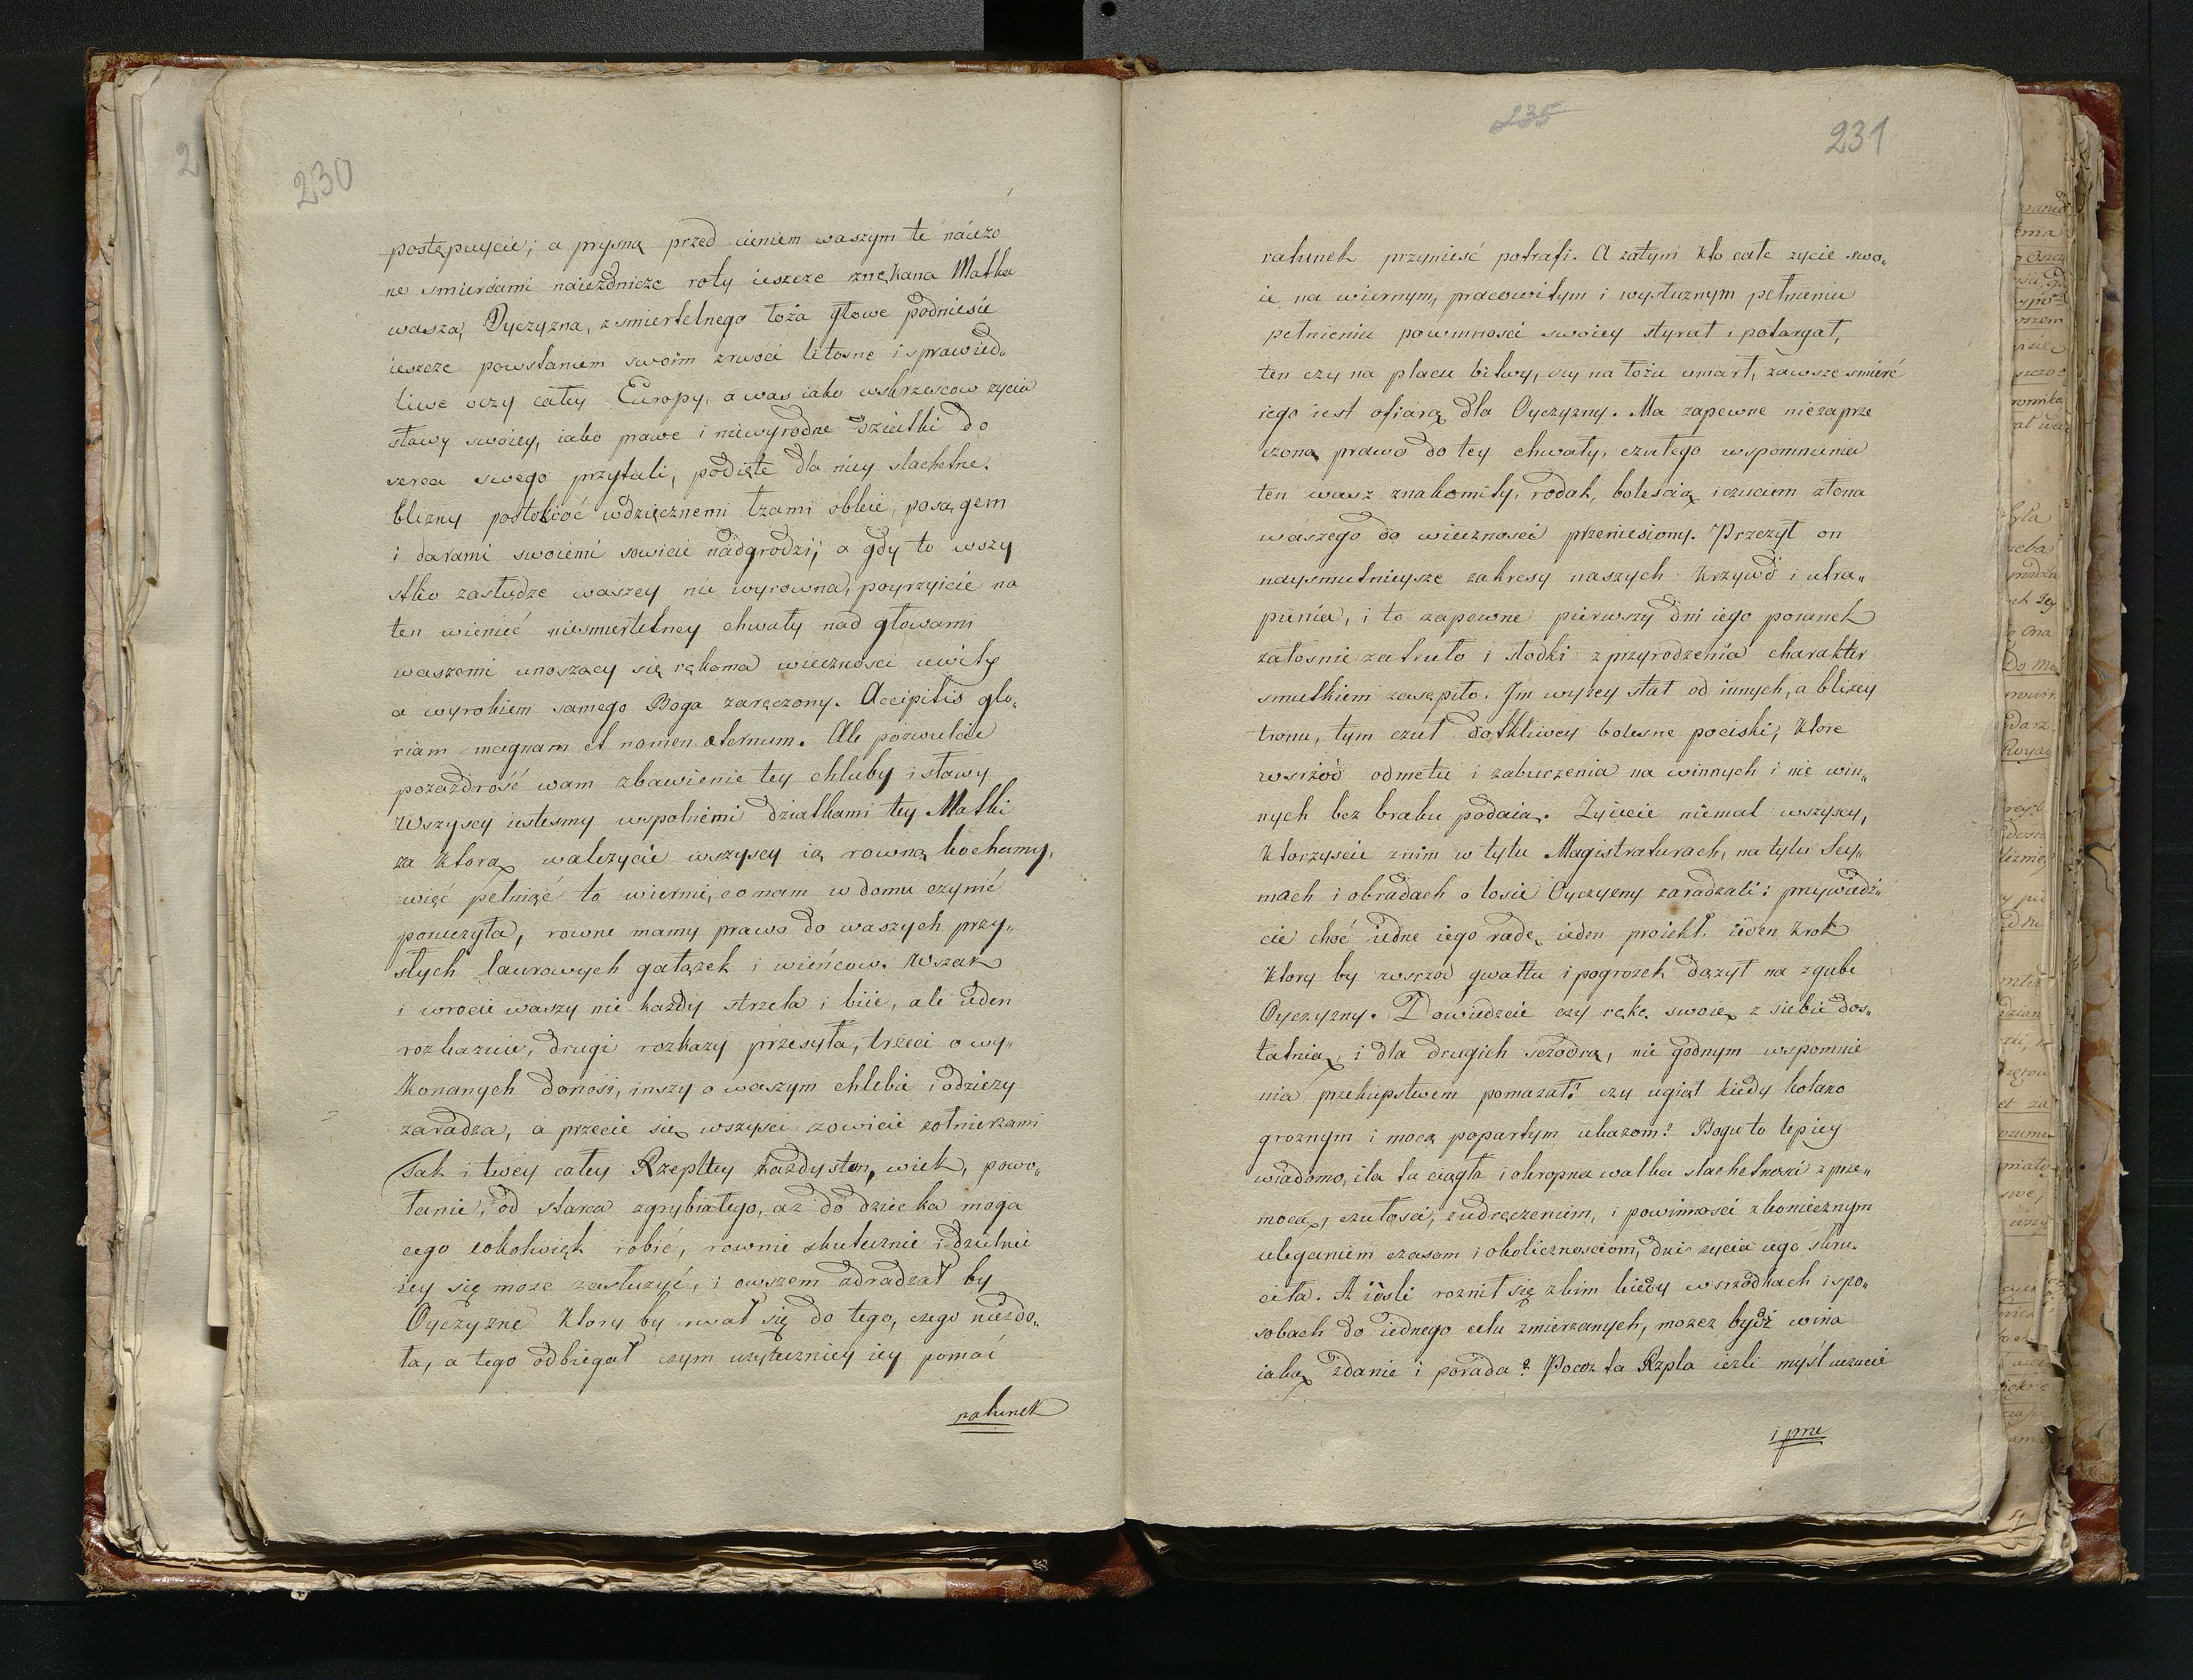 230
postępuycie; a prysną przed cieniem waszym te naiezo
ne smierciami naiezdnicze roty ieszcze znękana Matka
wasza, Oyczyzna, z smiertelnego łoża głowe podniesie
ieszcze powstaniem swoim zwróci litosne i sprawied„
liwe oczy całey Europy, a was iako wskrzescow zycia
sławy swoiey, iako prawe i niewyrodne Dziatki do
serca swego przytuli, podięte dla niey slachetne.
blizny wdzięcznemi łzami obleie, posągem
i darami swoiemi sowicie nadgrodzi; a gdy to wszy
stko zasłudze waszey nie wyrowna, poyrzyicie na
ten wieniec niesmiertelney chwały nad głowami
waszemi unoszący się rękoma wieczności uwity
a wyrokiem samego Boga zaręczony. Accipitis glo„
riam magnam et nomen æternum. Ale pozwolcie
pozazdrość wam zbawienie tey chluby i sławy
Wszyscy iestesmy wspolnemi dziatkami tey Matki
za ktorą walczycie wszyscy ią rowną kochamy,
więc pełniąc to wiernie, co nam w domu czynić
poruczyła, rowne mamy prawo do waszych przy„
słych laurowych gałązek i wieńcow. Wszak
i wrocie waszy nie każdy strzela i biie, ale ieden
rozkazuie, drugi rozkazy przesyła, trzeci o wy„
konanych donosi, inszy o waszym chlebie i odziezy
zaradza, a przecie się wszysci zowicie zołnierzami
Tak i twey całey Rzepltey każdy stan, wiek, powo„
łanie, od starca zgrybiałego, aż do dziecka moga
cego cokolwięk robić, rownie skutecznie i dzielnie
iey się może zasłużyć, i owszem zdradzał by
Oyczyznę ktory by rwał się do tego, czego niezdo„
ła, a tego odbiegał czym uzyteczniey iey pomoć
ratunek
235
231
ratunek przynieść potrafi. A zatym kto całe zycie swo„
ie na wiernym, pracowitym i wysłuznym pełnieniu
pełnieniu powinności swoiey styrał i potargał,
ten czy na placu bitwy, czy na łożu umarł, zawsze smierć
iego iest ofiarą dla Oyczyzny. Ma zapewne niezaprze
czona prawo do tey chwały, czułego wspomnienia
ten wasz znakomity, rodak, bolescią i czuciem złona
waszego do wieczności przeniesiony. Przezył on
naysmutnieysze zakresy naszych krzywd i utra„
pienia, i to zapewne pierwszy dni iego poranek
załosnie zatruło i słodki z przyrodzenia charakter
smutkiem zasępiło. Im wyzey stał od innych, a blizey
tronu, tym czuł dotkliwey bolesne pociski, ktore
wsrzód odmętu i zaburzenia na winnych i nie win„
nych bez braku padaią. Zyiecie niemal wszyscy,
ktorzyscie z nim w tylu Magistraturach, na tylu Sey„
mach i obradach o losie Oyczyzny zaradzali: przywiedź„
cie choć iedne iego radę, ieden proiekt. ieden krok
ktory by wsrzod gwałtu i pogrozek dązył na zgube
Oyczyzny. Dowiedzcie czy rękę swoię z siebie dos„
tatnią i dla drugich sczodrą, nie godnym wspomnie
nia przekupstwem pomazał! czy ugiął kiedy kolano
groznym i mocą popartym ukazom? Bogu to lepiey
wiadomo, ila ta ciągła i okropna walka slachetnosci z prze„
mocą, czułosci, z udręczeniem, i powinnosci z koniecznym
uleganiem czasom i okolicznosciom, dni zycia iego skru„
ciła. A iesli roznił się z kim kiedy w srzodkach i spo„
sobach do iednego celu zmierzanych, mozez bydź wina
iaką zdanie i porada? Pocoz ta Rzpla iezli myśl uczucie
i prze